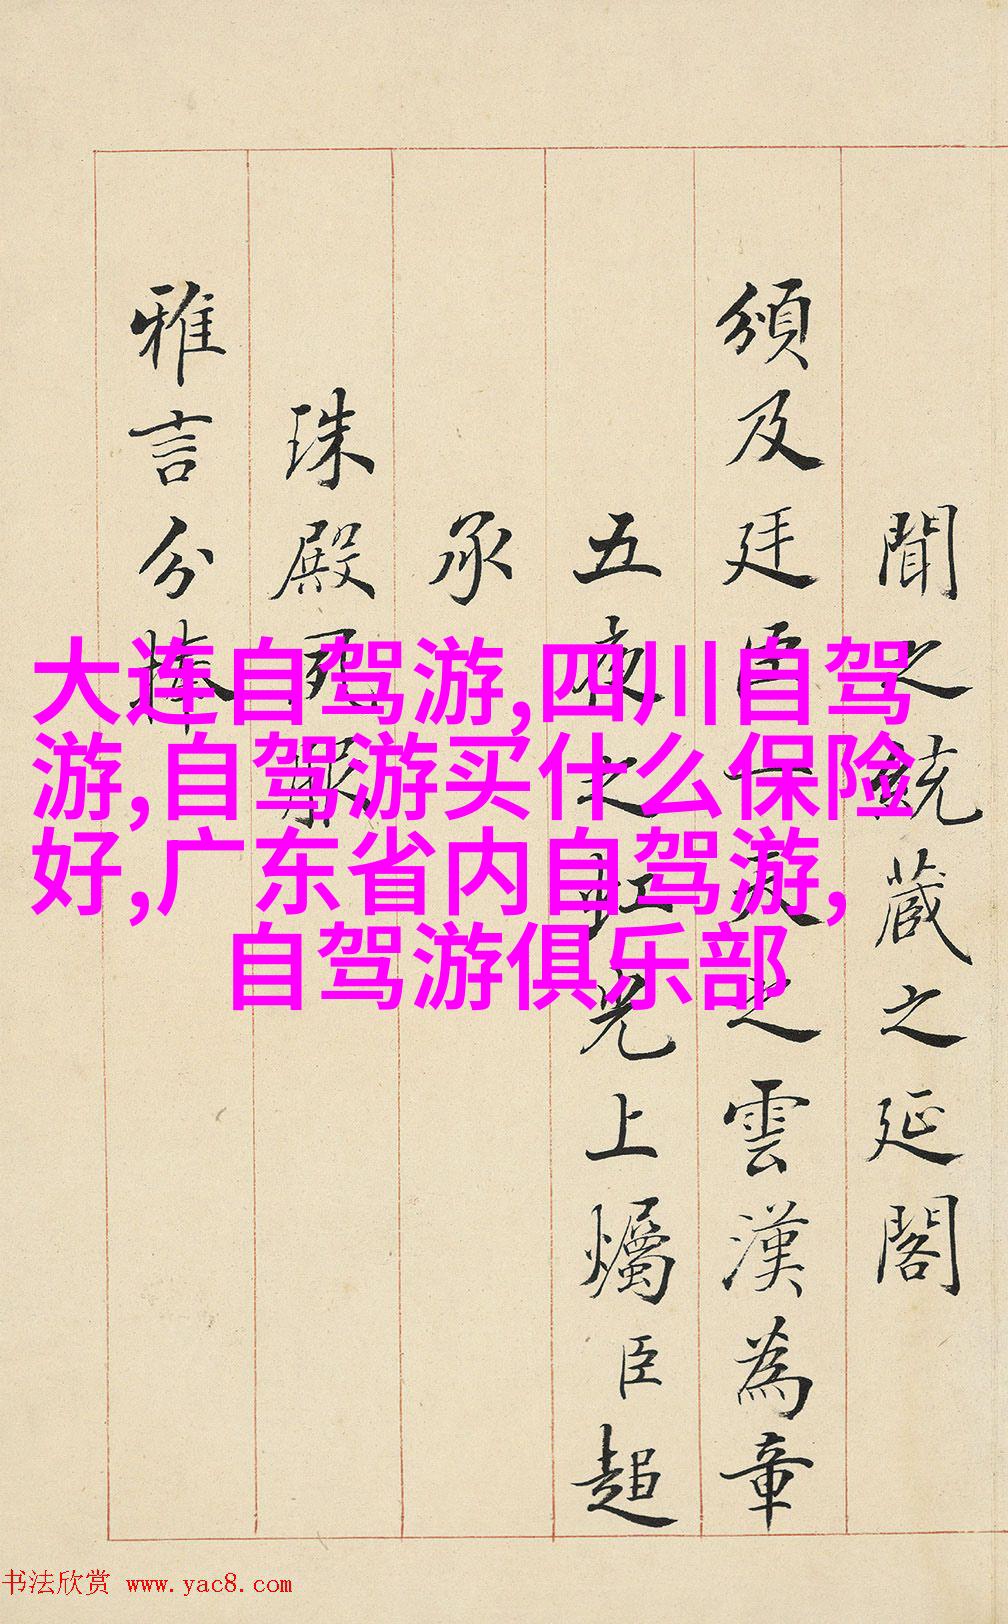 聞之統蔵之延閣
頒及廷臣之雲漢為章
五夜之虹光上爥臣超
承
珠殿
雅言分捧
大连自驾游,四川自驾
游,自驾游买什么保险
好,广东省内自驾游,
自驾游俱乐部
书法欣赏 www.yac8.com